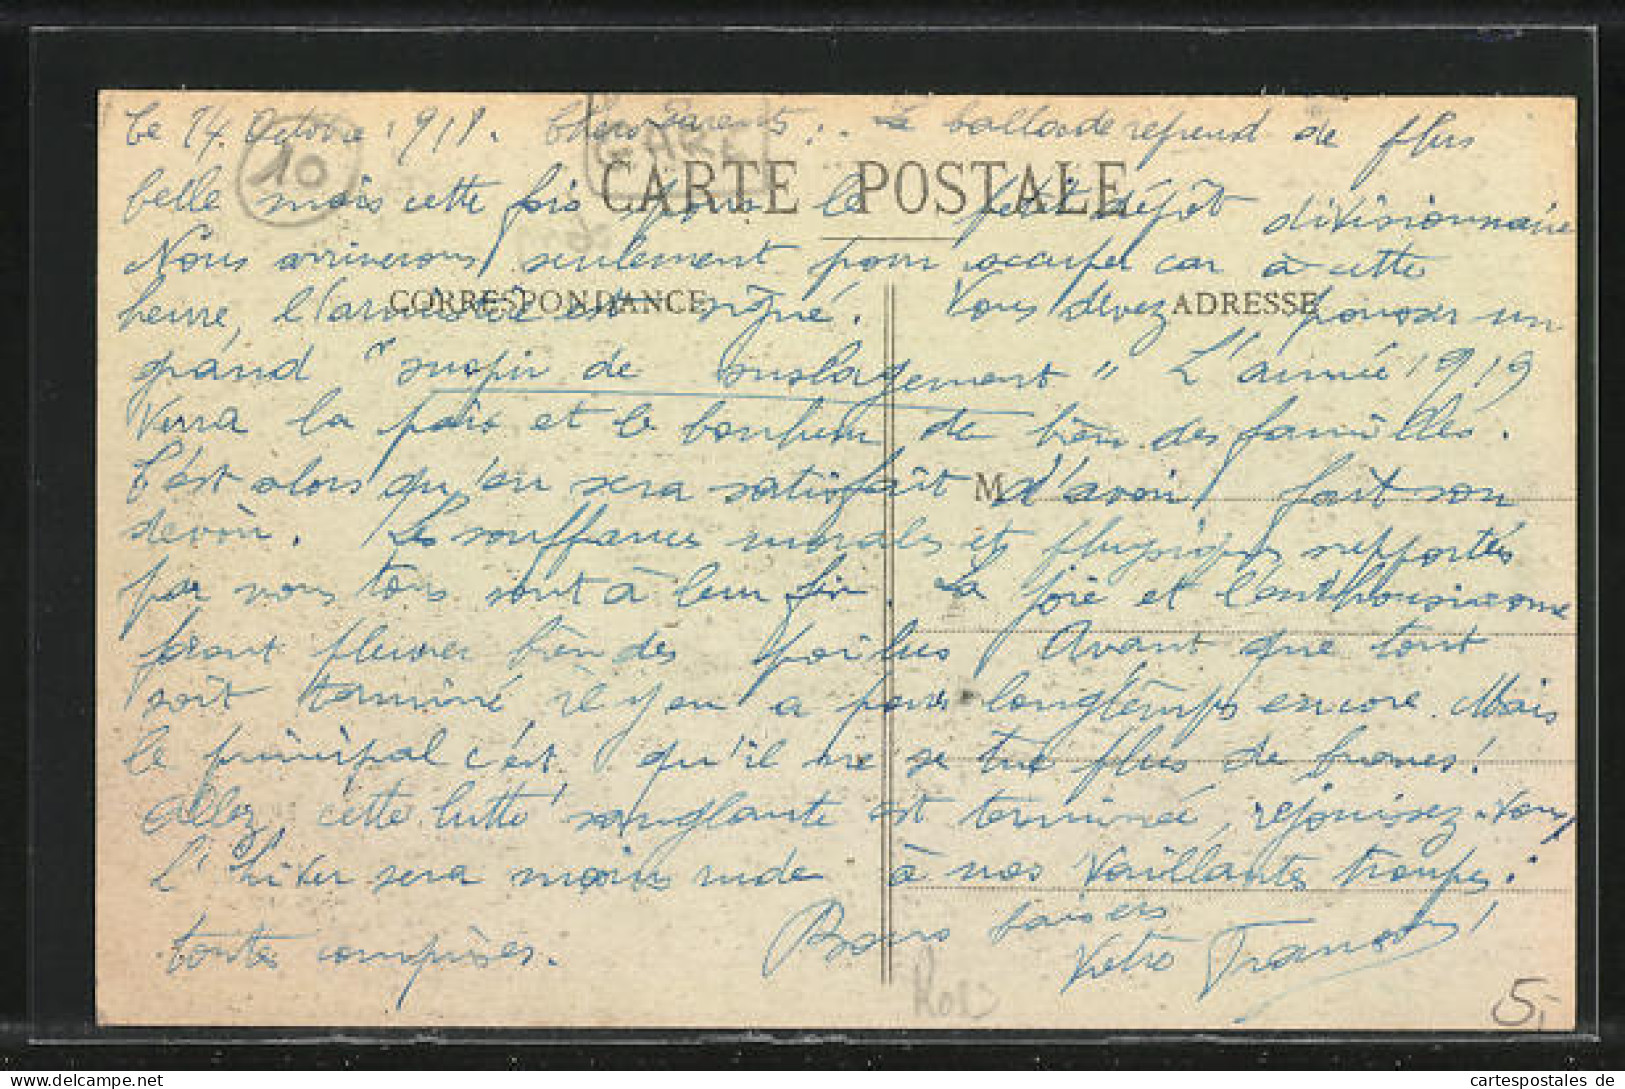 Le 14. Octobre 1918. Chers Parents: Le ballade reprend de plus
10
GARE
CARTE POSTALE
belle mais cette fois pour le petit dépôt divisionnaire
Nous arriverons seulement pour occuper car à cette
CORRESPONDANCE
ADRESSE
heure, l'armistice est signé. Vous devez pousser un
grand "soupir de soulagement" L'année 1919
Verra la paix et le bonheur de bien des familles.
C'est alors qu'on sera satisfait d'avoir fait son
M
devoir. Les souffrances morales et physiques supportés
par nous tous sont à leur fin. La joie et l'enthousiasme
feront pleurer bien des poilus Avant que tout
soit terminé, il y en a pour longtemps encore. Mais
le principal c'est qu'il ne se tue plus de braves!
Allez, cette lutte sanglante est terminée, rejouissez-vous
L'hiver sera moins rude à nos vaillantes troupes.
toutes comprises. Bons baisers
Votre François
5,-
cartespostales de